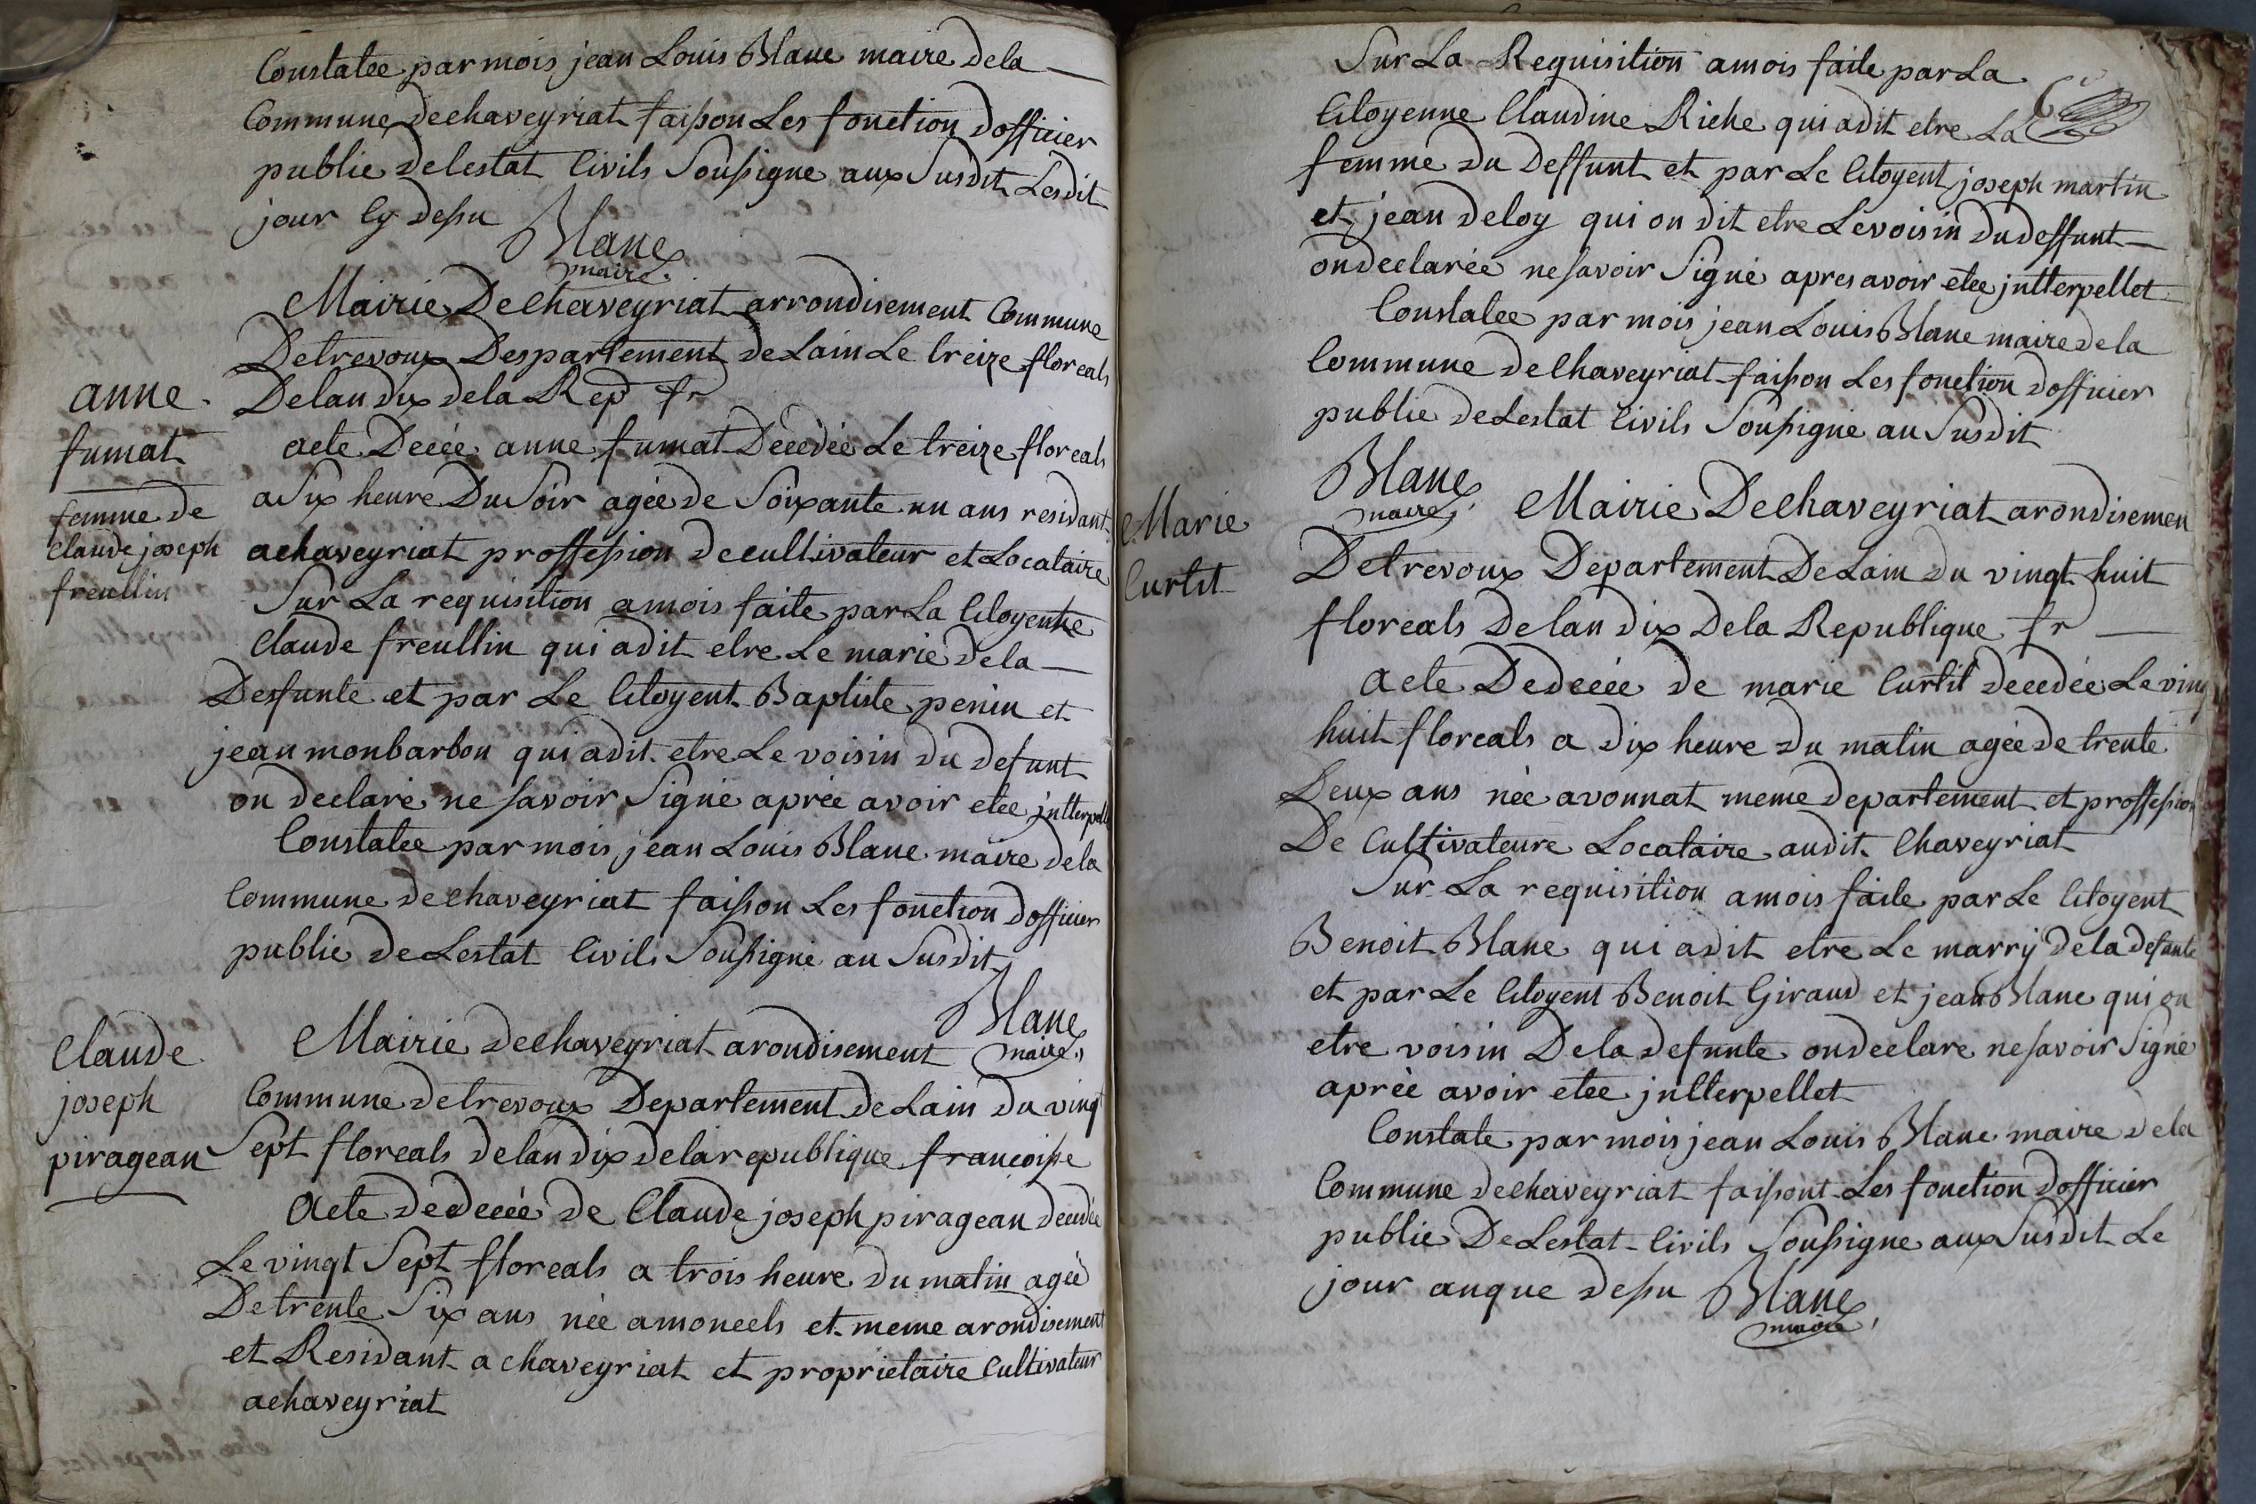 Constatée par mois jean Louis Blanc maire dela
Commune dechaveyriat faisson Les fonction dofficier
public delestat Civils Soussigne aux Susdit Lesdit
jour Cy dessu
Blanc
maire
Mairie Dechaveyriat arrondisement Commune
Detrevoux Despartement deLain Le treize floreals
Delan dix dela Rep fr
anne
fumat
femme de
Claude joseph
freullin
acte Deceé anne fumat Decedée Le treize floreals
a Six heure Du Soir agée de Soixante un ans residant
achaveyriat proffession de cultivateur et Locataire
Sur La requisition amois faite par La Citoyenne
Claude freullin qui adit etre Le marie dela
Desfunte et par Le Citoyent Baptiste penin et
jean monbarbon qui adit etre Le voisin du defunt
on declaré ne savoir Signé aprée avoir etée jntterpelle
Constatée par mois jean Louis Blanc maire dela
Commune de chaveyriat faisson Les fonction dofficier
public de Lestat Civils Soussigné au Susdit
Blanc
maire
Claude
joseph
piragean
Mairie dechaveyriat arondisement
Commune detrevoux Departement de Lain du vingt
Sept floreals delan dix dela republique francoisse
Acte dedeceé de Claude joseph piragean decedée
Le vingt Sept floreals a trois heure du matin ageé
De trente Six ans née amoncels et meme arondisement
et Residant a chaveyriat et proprietaire Cultivateur
achaveyriat
Sur La Requisition amois faite par La
Citoyenne Claudine Riche qui adit etre La
femme du Deffunt et par Le Citoyent joseph martin
et jean deloy qui on dit etre Le voisin du deffunt
on declarée ne savoir Signé apres avoir etée jntterpellet
Constatee par mois jean Louis Blanc maire dela
Commune de Chaveyriat faisson Les fonction dofficier
public de Lestat Civils Soussigné au Susdit
Blanc
maire
Marie
Curtit
Mairie Dechaveyriat arondisemen
Detrevoux Departement De Lain du vingt huit
floreals Delan dix Dela Republique fr
Acte Dedeceé de marie Curtil decedée Le ving
huit floreals a dix heure du matin agée de trente
Deux ans née avonnat meme departement et proffession
De Cultivateure Locataire audit Chaveyriat
Sur La requisition amois faite par Le Citoyent
Benoit Blanc qui adit etre Le marrÿ dela defunte
et par Le Citoyent Benoit Giraud et jean Blanc qui on
etre voisin Dela defunte on declare ne savoir Signé
aprée avoir etée jntterpellet
Constate par mois jean Louis Blanc maire dela
Commune dechaveyriat faissont Les fonction dofficier
public De Lestat Civils Soussigne aux Susdit Le
jour anque dessu
Blanc
maire